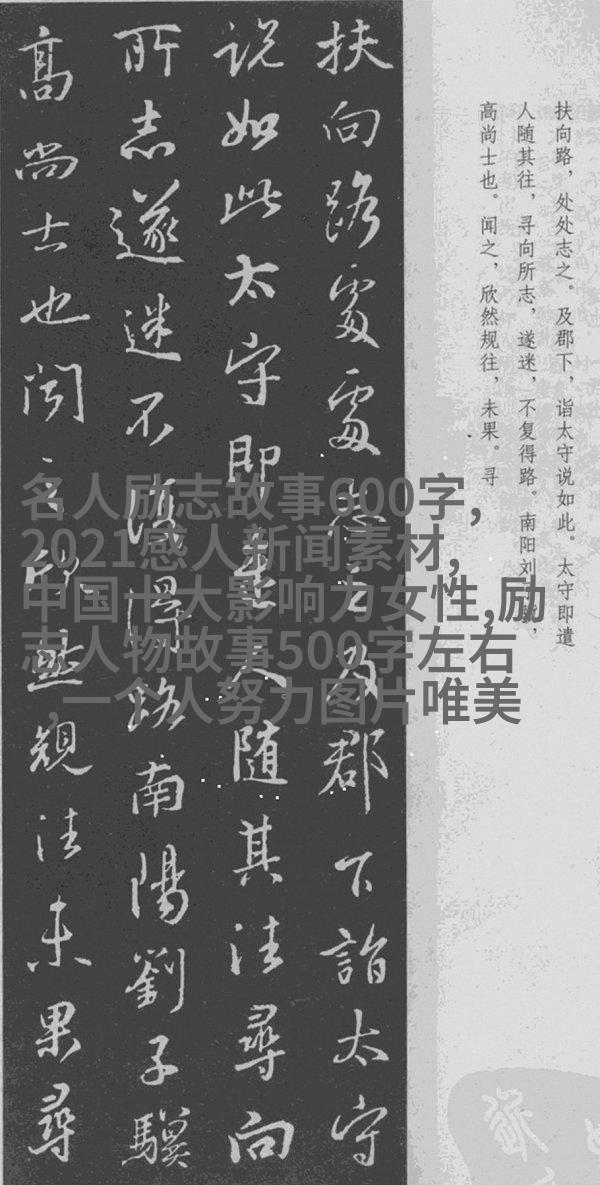 扶向路，处处志之。及郡下，诣太守说如此。太守即遣
人随其往，寻向所志，遂迷，不复得路。南阳刘子骥，
高尚士也。闻之，欣然规往，未果。寻
扶向路處處志之及郡下詣太守
説如此太守即遣人随其往尋向
所志遂迷不復得路南陽劉子驥
高尚士也聞之欣然規往未果尋
名人励志故事600字,
2021感人新闻素材,
中国十大影响力女性,励
志人物故事500字左右
,一个人努力图片唯美